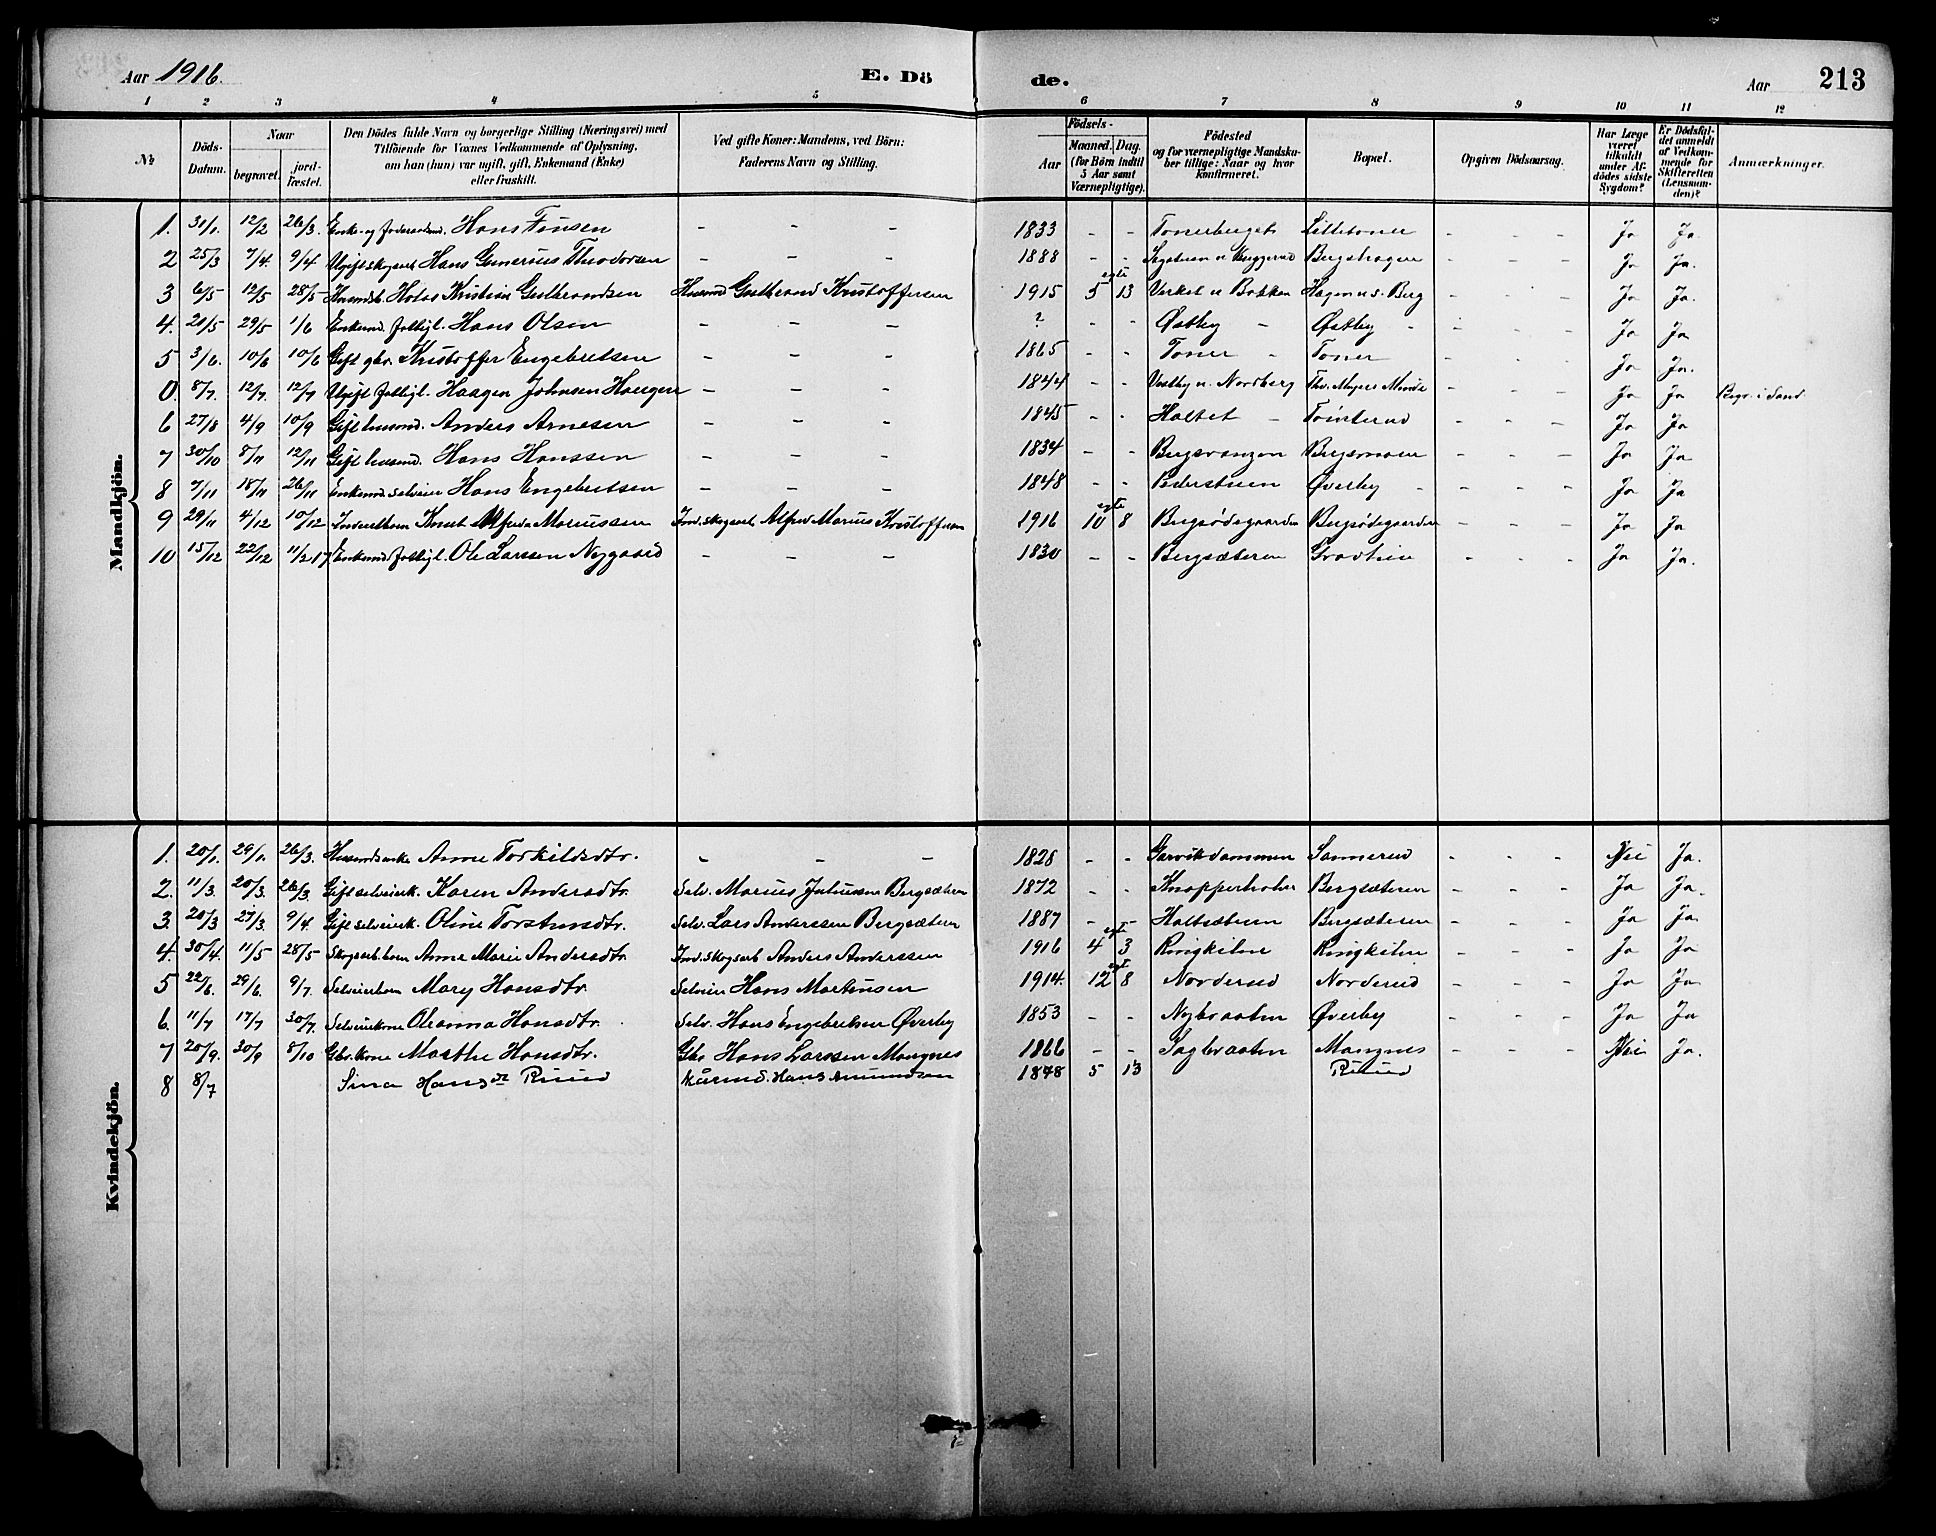 Aar 1916. E. Dö de. Aar 213
1 2 3 4 5 6 7 8 9 10 11 12
№ Döds-Datum. Naar begravet. jord-fæstet. Den Dödes fulde Navn og borgerlige Stilling (Næringsvei) med Tilföiende for Voxnes Vedkommende af Oplysning, om han (hun) var ugift, gift, Enkemand (Enke) eller fraskilt. Ved gifte Koner: Mandens, ved Börn: Faderens Navn og Stilling. Födsels- Aar Maaned. Dag. (for Börn indtil 5 Aar samt Værnepligtige). Födested og for værnepligtige Mandska-ber tillige: Naar og hvor konfirmeret. Bopæl. Opgiven Dödsaarsag. Har Læge været tilkaldt under Af-dödes sidste Sygdom? Er Dödsfal-det anmeldt af Vedkom-mende for Skifteretten (Lensman-den)? Anmærkninger.
Mandkjön.
1. 31/1. 12/2 26/3. Hans Finsen - - - 1833 - - Tonerberget Lilletoner - - - Ja Ja.
2 25/3 7/4. 9/4 Ugift skogsarb Hans Gunerius Theodorsen - - - 1888 - - Bergshagen - - - Ja Ja.
3 6/5 12/5 28/5 Husmdsb. Kristian Gulbrandsen Husmd Gulbrand Kristoffersen 1915 5 egte 13 Verket u Bakken Hagen u s. Berg - - - Ja Ja.
4. 20/5 29/5 1/6 Enkemd. fattigl. Hans Olsen - - - ? - - Østby - Østby - - - - Ja Ja
5 3/6. 10/6 10/6 Gift gbr. Kristoffer Engebretsen - - - 1865 - - Toner - Toner - - - Ja Ja.
0. 8/7. 12/7. 12/7 Ugift fattigl. Haagen Johnsen Haugen - - - 1844 - - Vestby u. Nordberg Thv. Meyers Minde - - - Ja Ja Begr. i Sand
6 27/8 4/9 10/9 Gift husmd. Anders Arnesen - - - 1845 - - Haltet - Tomterud - - - Ja Ja
7 30/10 8/11 12/11 Gift husmd. Hans Hanssen - - - 1834 - - Bergsvangen Bergsmoen - - - Ja Ja
8 7/11 18/11 26/11 Enkemd selveier Hans Engebretsen - - - 1848 - - Pederstuen Øverby - - - - Ja Ja
9 29/11 4/12 10/12 Knut Alfred Mariussen Ind. skogsarb Alfred Marius Kristoffersen 1916 10 egte 8 Bergsødegaarden Bergsødegaarden - - - Ja Ja
10 15/12 22/12 11/2 17 Enkemd fattigl. Ole Larsen Nygaard - - - 1830 - - Bergsæteren - - - Ja Ja.
Kvindekjön.
1. 20/1. 29/1. 26/3. Husmdsenke Anne Torkildsdtr. - - - 1828 - - Garvikdammen Sannerud - - - Nei Ja.
2. 11/3 20/3 26/3. Gift selveierk. Karen Andersdtr. Selv. Marius Juliussen Bergsæteren 1872 - - Knapperholen Bergsæteren - - - Ja Ja.
3. 20/3 27/3. 9/4. Gift selveierk. Oline Torstensdtr. Selv. Lars Anderssen Bergsæteren 1887 - - Haltsæteren Bergsæteren - - - Ja Ja.
4. 30/4. 11/5 28/5 Skogsarb. barn Anne Marie Andersdtr. Ind. skogsarb Anders Anderssen 1916 4 egt. 3 Ringkilen Ringkilen - - - Ja Ja
5 22/6. 29/6. 9/7. Selveierbarn Mary Hansdtr. Selveier Hans Martensen 1914. 12 egt. 8 Norderud Norderud - - - Ja Ja.
6. 11/7 17/7 30/7. Selveierkone Oleanna Hansdtr. Selv. Hans Engebretsen Øverby 1853 - - Nybraaten Øverby - - - Ja Ja
7 20/9. 30/9 8/10 Gbr. kone Marthe Hansdtr. Gbr Hans Larssen Mangnes 1866 - - Sagbraaten Mangnes - - - Nei Ja.
8 8/7 Sina Hansdtr Ruud Kårmd. Hans Amundsen 1878 5 13 Ruud